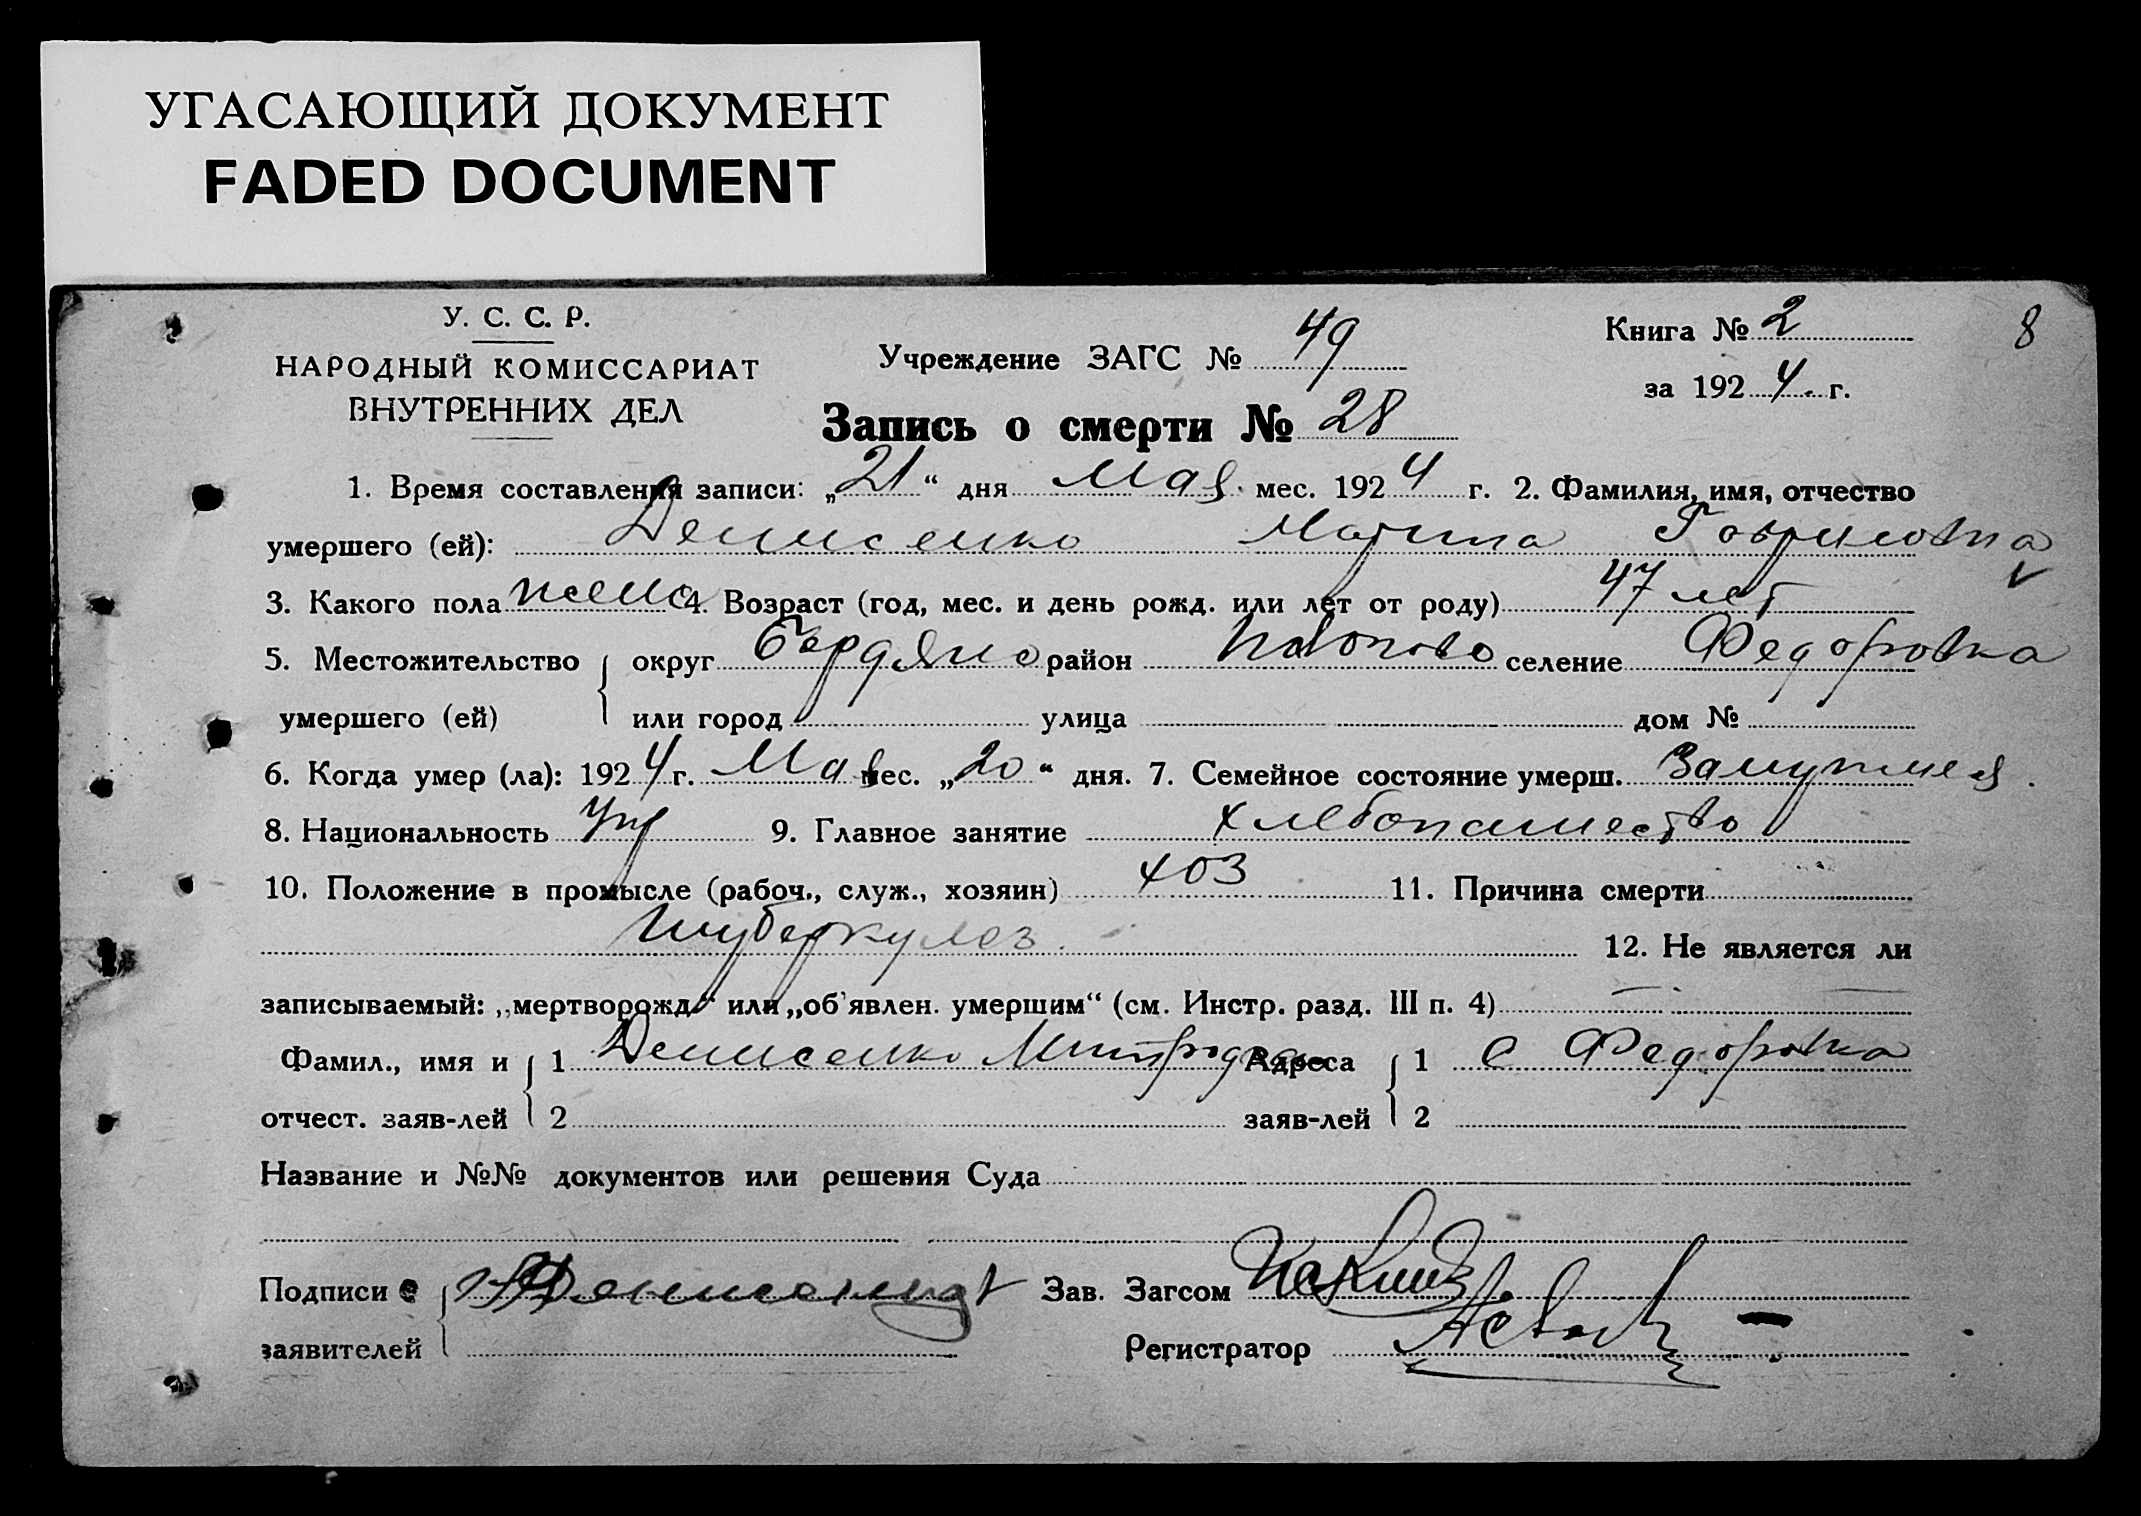 УГАСАЮЩИЙ ДОКУМЕНТ
FADED DOCUMENT
У. С. С. Р.
НАРОДНЫЙ КОМИССАРИАТ
ВНУТРЕННИХ ДЕЛ
Учреждение ЗАГС № 49
Книга № 2
за 1924 г.
8
Запись о смерти № 28
1. Время составления записи: „21“ дня Мая мес. 1924 г. 2. Фамилия, имя, отчество
умершего (ей): Денисенко Марина Гавриловна
3. Какого пола жена 4. Возраст (год, мес. и день рожд. или лет от роду) 47 лет
5. Местожительство округ Бердянс район селение Федоровка
умершего (ей) или город улица дом №
6. Когда умер (ла): 1924 г. Мая мес. „20“ дня. 7. Семейное состояние умерш. Замужняя.
8. Национальность Укр 9. Главное занятие хлебопашество
10. Положение в промысле (рабоч., служ., хозяин) хоз 11. Причина смерти
туберкулез. 12. Не является ли
записываемый: „мертворожд.“ или „об'явлен. умершим“ (см. Инстр. разд. III п. 4) — —
Фамил., имя и 1 Денисенко Митрофан Адреса 1 с Федоровка
отчест. заяв-лей 2 заяв-лей 2
Название и №№ документов или решения Суда
Подписи Зав. Загсом
заявителей Регистратор